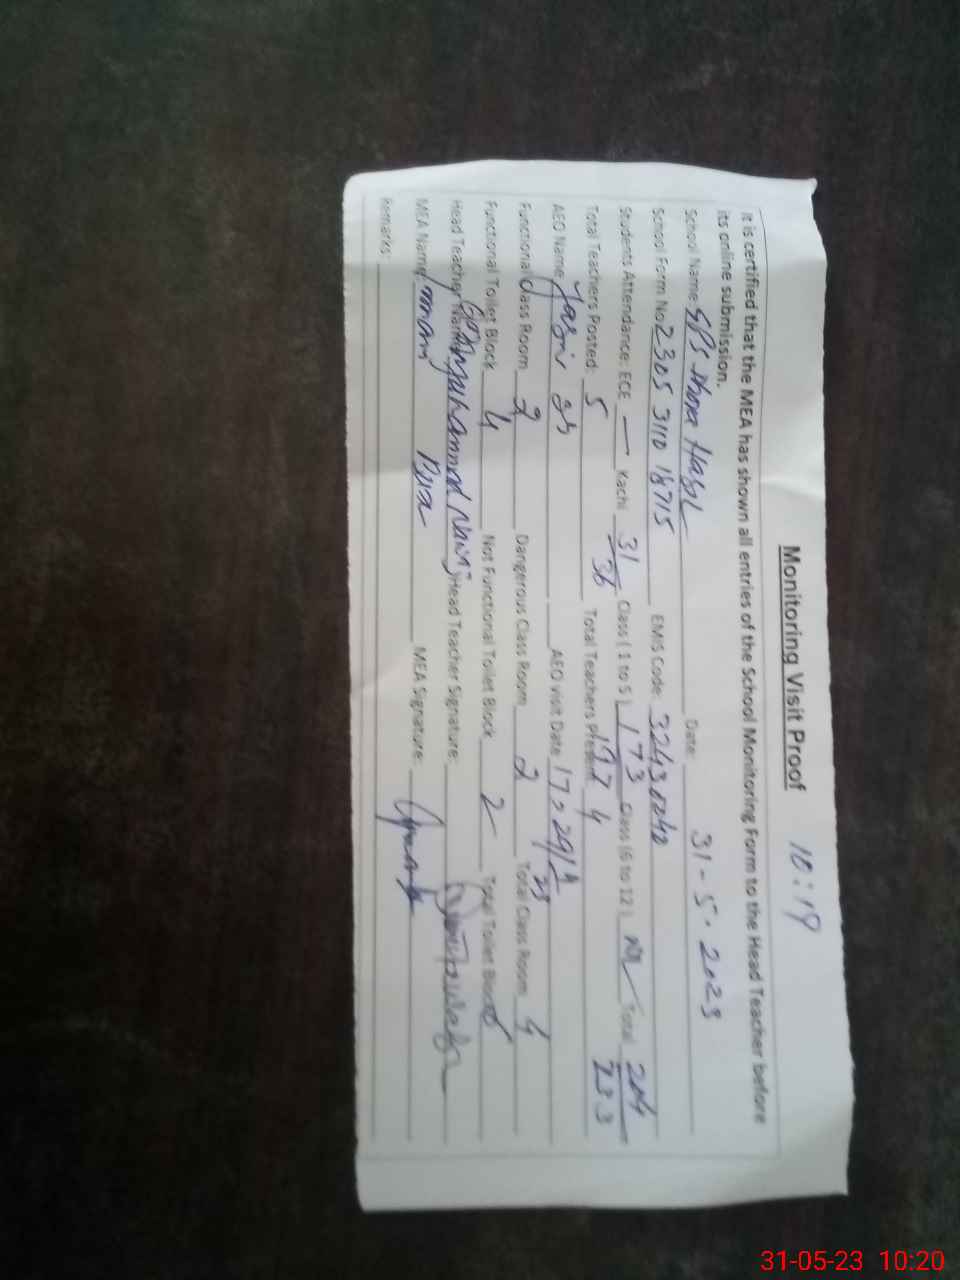 Monitoring Visit Proof 10:19
It is certified that the MEA has shown all entries of the School Monitoring Form to the Head Teacher before
its online submission.
School Name: GPS Date: 31-5-2023
School Form No 2305 3110 18715 EMIS Code: 32430040
Students Attendance: ECE — Kachi 31/36 Class (1 to 5) 173/197 Class (6 to 12) Total 204/233
Total Teachers Posted: 5 Total Teachers Present 4
AEO Name AEO visit Date 17
Functional Class Room 2 Dangerous Class Room 2 Total Class Room 4
Functional Toilet Block 4 Not Functional Toilet Block 2 Total Toilet Block 6
Head Teacher Name Head Teacher Signature:
MEA Name MEA Signature:
Remarks:
31-05-23 10:20